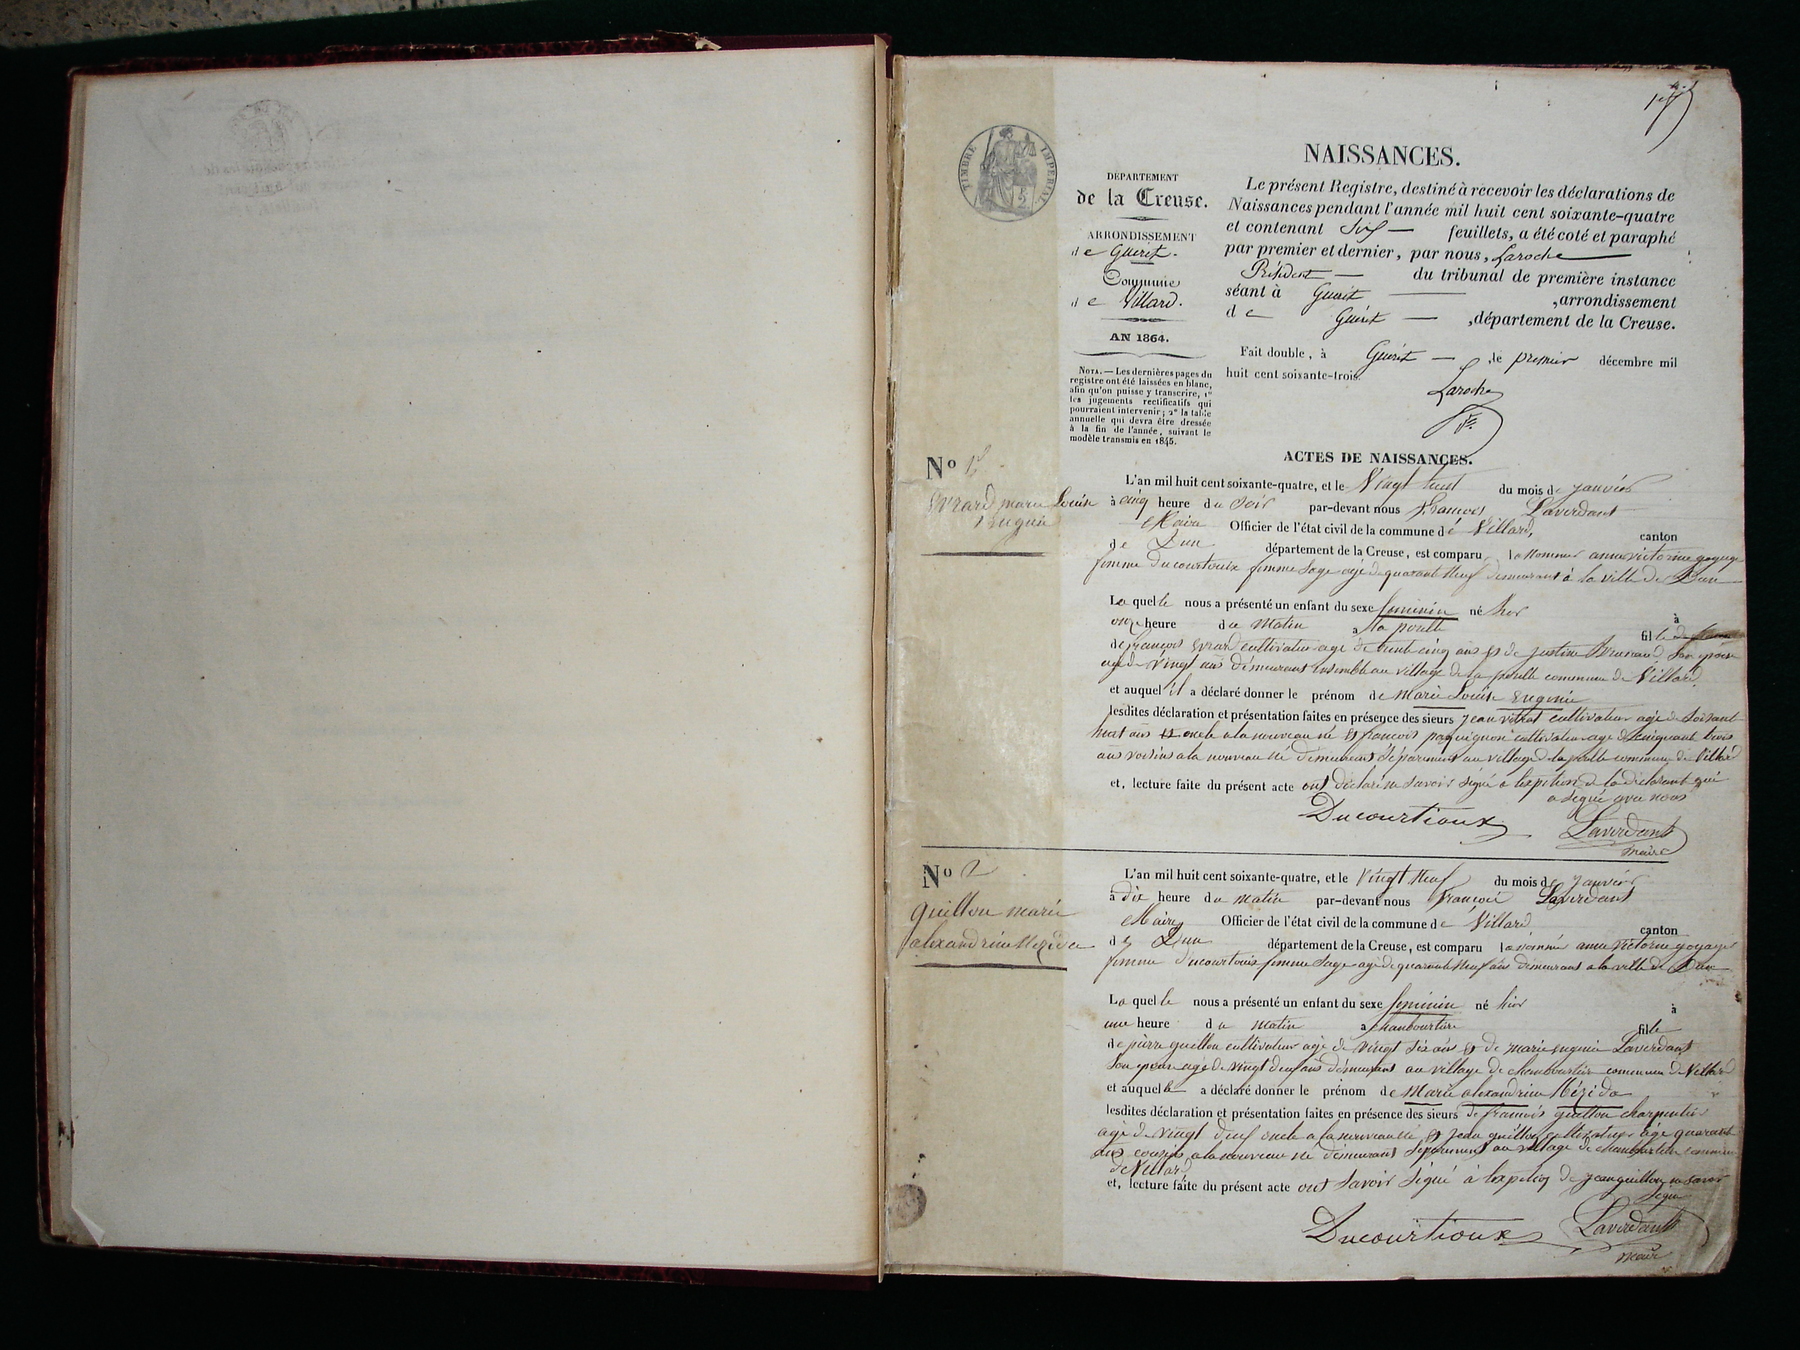 TIMBRE IMPERIAL
DÉPARTEMENT
de la Creuse.
ARRONDISSEMENT
de Guéret.
Commune
de Villard.
AN 1864.
NOTA. — Les dernières pages du
registre ont été laissées en blanc,
afin qu'on puisse y transcrire, 1º
les jugements rectificatifs qui
pourraient intervenir; 2º la table
annuelle qui devra être dressée
à la fin de l'année, suivant le
modèle transmis en 1845.
NAISSANCES.
Le présent Registre, destiné à recevoir les déclarations de
Naissances pendant l'année mil huit cent soixante-quatre
et contenant feuillets, a été coté et paraphé
par premier et dernier, par nous, Laroche
Président du tribunal de première instance
séant à Guéret ,arrondissement
de Guéret ,département de la Creuse.
Fait double, à Guéret le premier décembre mil
huit cent soixante-trois.
Laroche
ACTES DE NAISSANCES.
Nº 1
Evrard marie Louise
Eugénie
L'an mil huit cent soixante-quatre, et le Vingt huit du mois de janvier
à cinq heure du soir par-devant nous François Laverdant
Maire Officier de l'état civil de la commune de Villard,
canton
de Dun département de la Creuse, est comparu la nommée anne victorine
femme ducourtioux femme sage agé de quarante neuf demeurant à la ville de Dun
Laquelle nous a présenté un enfant du sexe feminin né hier à
onze heure du matin a la pouille fille
de françois Evrard cultivateur agé de trente cinq ans et de justine son épouse
agé de vingt ans démeurant ensemble au village de la pouille commune de Villard
et auquel il a déclaré donner le prénom de Marie Louise Eugénie
lesdites déclaration et présentation faites en présence des sieurs jean cultivateur agé de soixante
huit ans oncle a la nouveau né et françois paquignon cultivateur agé de cinquante trois
ans voisins a la nouveau né demeurant séparément au village de la pouille commune de Villard
et, lecture faite du présent acte ont déclaré ne savoir signé a la déclarant qui
a signé avec nous
Ducourtioux Laverdant
maire
Nº 2
Guillou marie
alexandrine
L'an mil huit cent soixante-quatre, et le vingt neuf du mois de janvier
à dix heure du matin par-devant nous François Laverdant
Maire Officier de l'état civil de la commune de Villard
canton
de Dun département de la Creuse, est comparu la nommée anne victorine
femme ducourtioux femme sage agé de quarante neuf ans demeurant a la ville de Dun
Laquelle nous a présenté un enfant du sexe feminin né hier à
une heure du matin a fille
de pierre guillou cultivateur agé de vingt six ans et de marie eugenie Laverdant
son épouse agé de vingt deux ans demeurant au village de commune de Villard
et auquelle a déclaré donner le prénom de Marie alexandrine
lesdites déclaration et présentation faites en présence des sieurs de françois guillou charpentier
agé de vingt oncle a la nouveau né et jean guillou cultivateur agé quarante
ans cousin a la nouveau né demeurant séparément au village de commune
de Villard
et, lecture faite du présent acte ont savoir signé à de jean guillou
signé
Ducourtioux Laverdant
maire